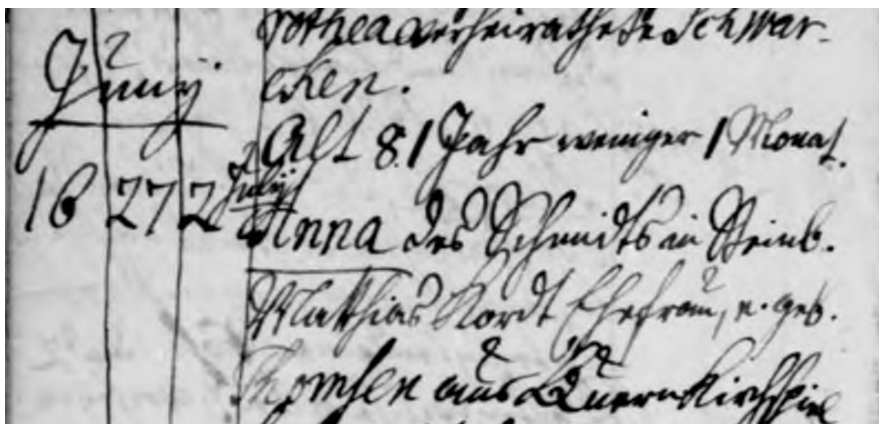 rothea verheirathete Schwar-
cken.
Junij
Alt 81 Jahr weniger 1 Monat.
16 27 2 Julij
Anna des Schmidts in Steinb.
Matthias Kordt Ehefrau, e. geb.
Thomsen aus Quern Kirchspiel